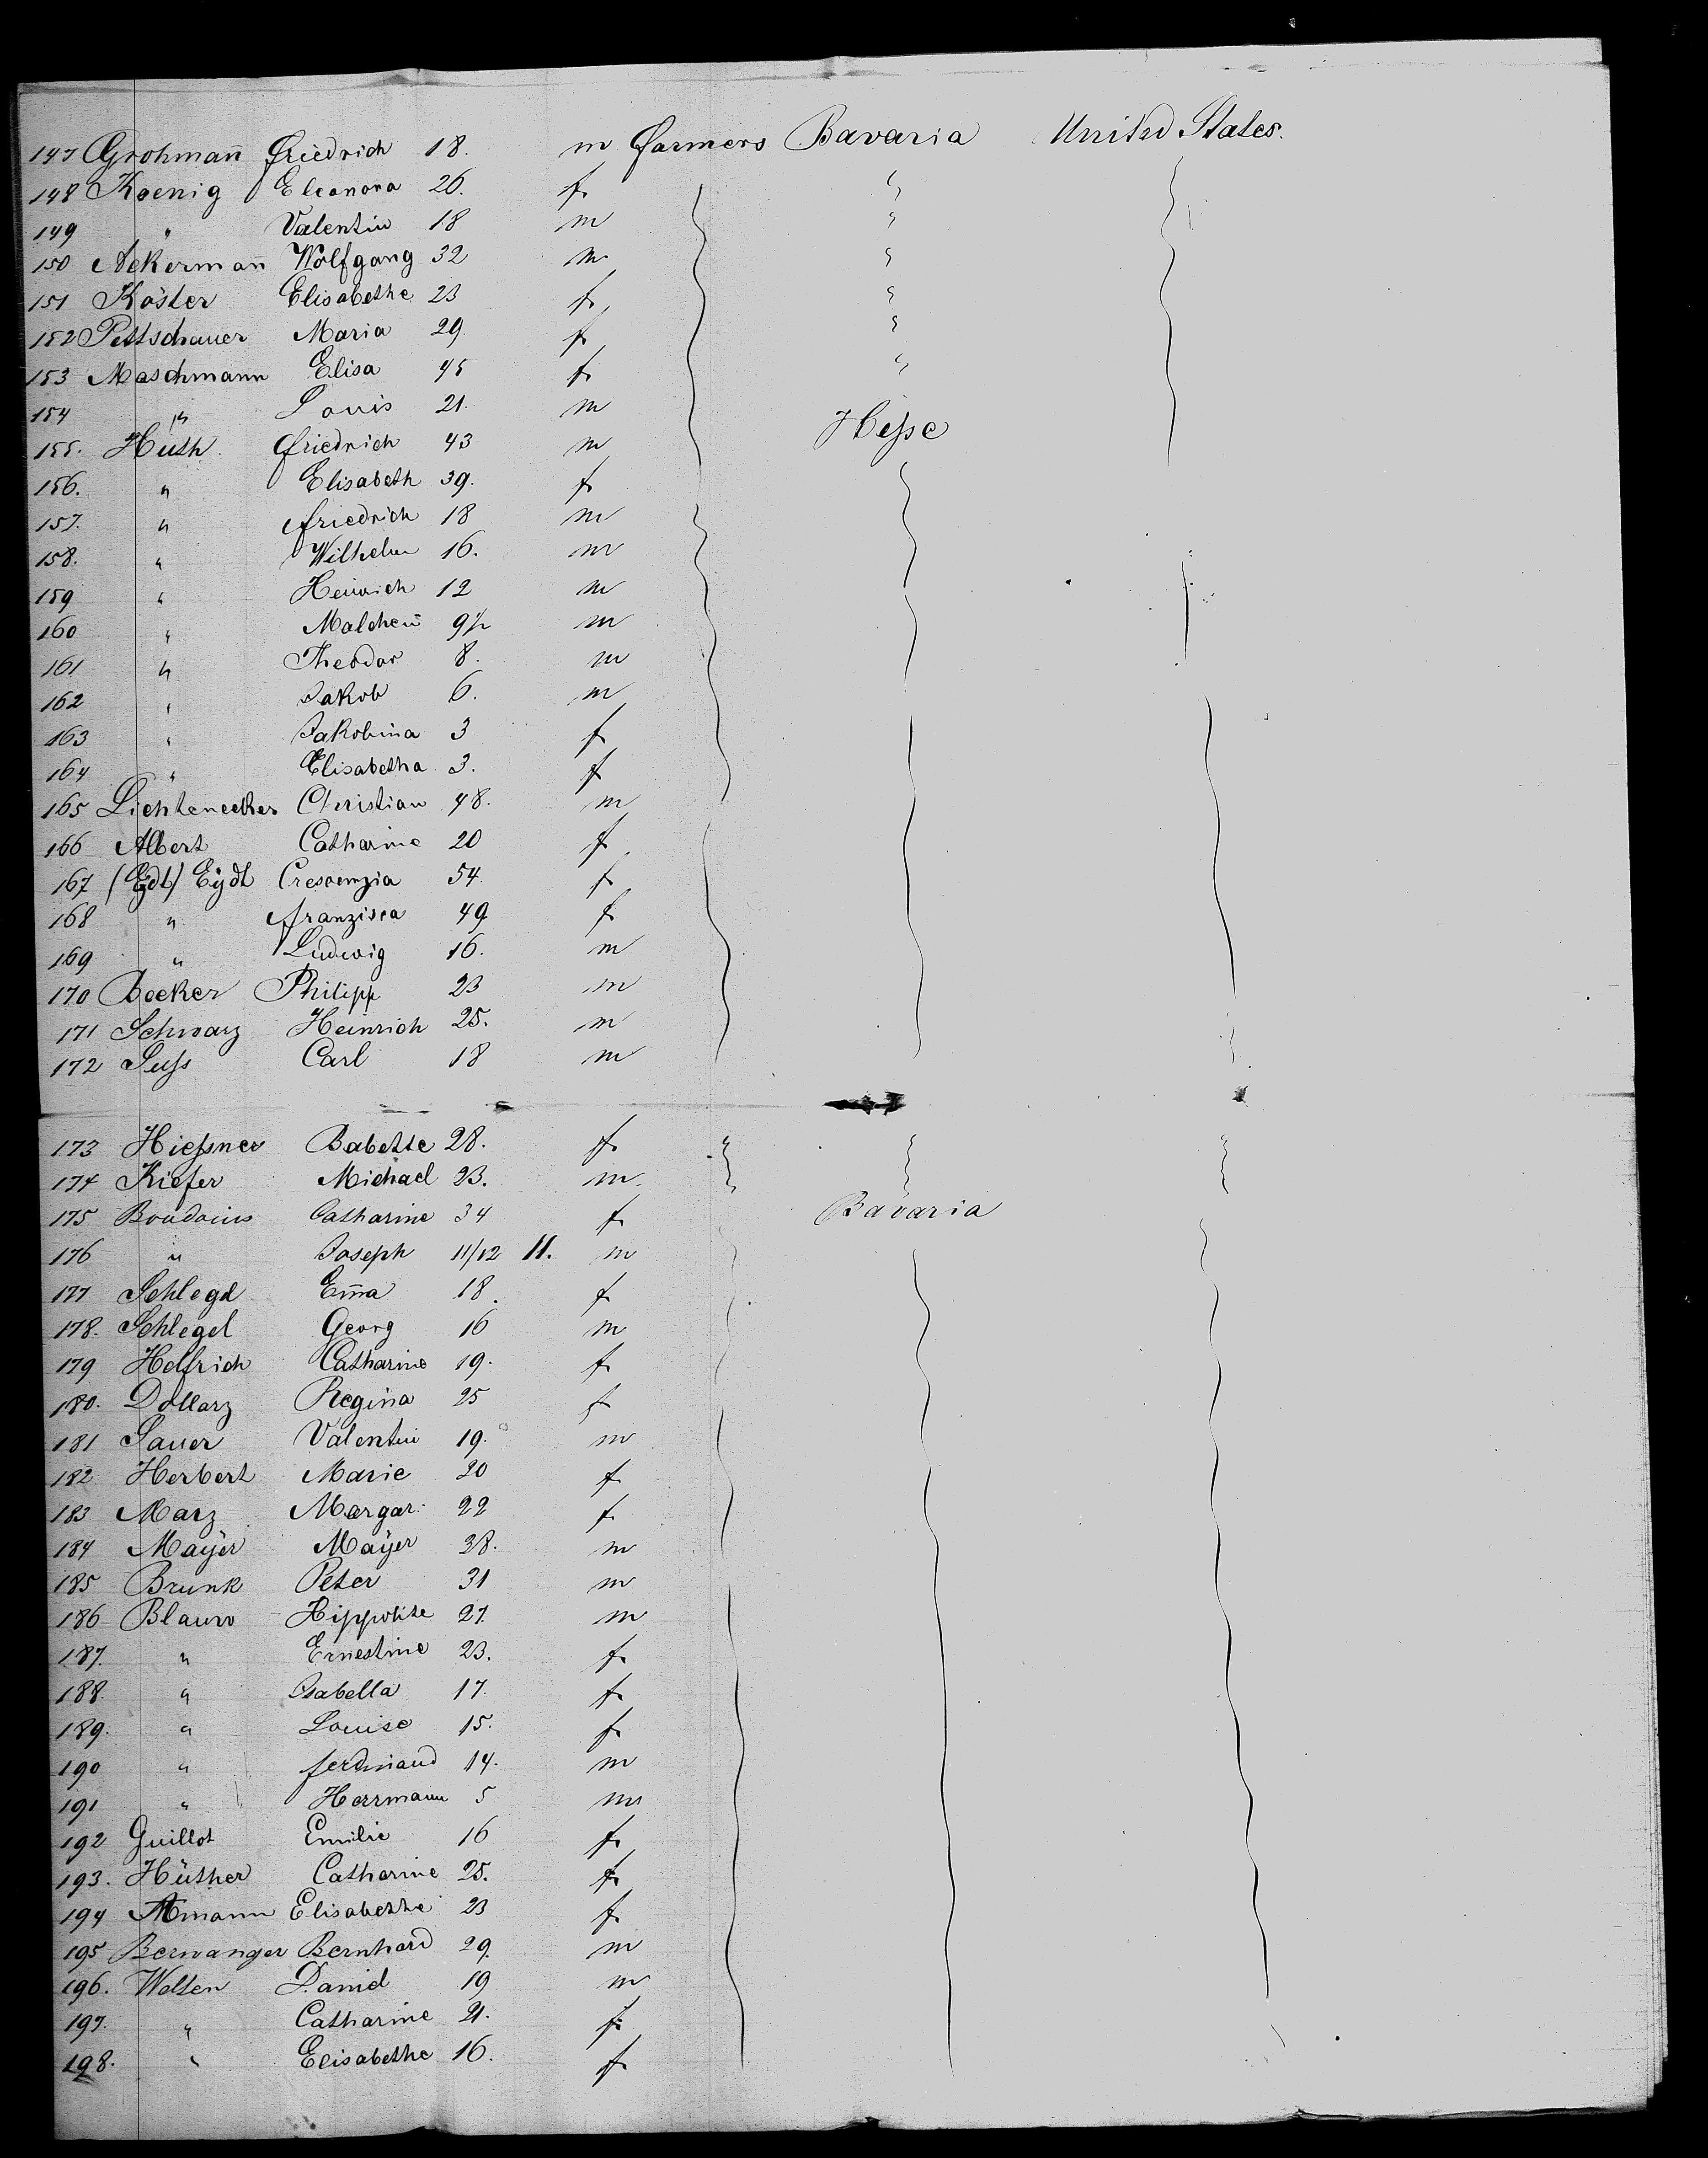 147 Grohmañ Friedrich 18. m Farmers Bavaria United States.
148 Koenig Eleonora 26. f "
149 " Valentin 18 m "
150 Ackermañ Wolfgang 32 m "
151 Köster Elisabethe 23 f "
152 Pettschauer Maria 29 f "
153 Maschmann Elisa 45 f "
154 " Louis 21. m
155. Huth. Friedrich 43 m Hesse
156. " Elisabeth 39. f
157. " Friedrich 18 m
158. " Wilhelm 16. m
159 " Heinrich 12 m
160 " Malchen 9½ m
161 " Theodor 8. m
162 " Jakob 6. m
163 " Jakobina 3 f
164 " Elisabetha 3. f
165 Lichtenecker Christian 48. m
166 Albert Catharine 20 f
167 (Edt) Eydt Crescenzia 54. f
168 " Franzisca 49 f
169 " Ludwig 16. m
170 Becker Philipp 23 m
171 Schwarz Heinrich 25. m
172 Suss Carl 18 m
173 Hiessner Babette 28. f "
174 Kiefer Michael 23. m.
175 Catharine 34 f Bavaria
176 " Joseph 11/12 11. m
177 Schlegel Em̄a 18. f
178. Schlegel Georg 16 m
179 Helfrich Catharine 19. f
180. Dollarz Regina 25 f
181 Sauer Valentin 19. m
182 Herbert Marie 20 f
183 Marz Margar. 22 f
184 Mayer Mayer 38. m
185 Brunk Peter 31 m
186 Blaum Hippolite 27. m
187. " Ernestine 23. f
188. " Isabella 17. f
189. " Louise 15. f
190 " Ferdinand 14. m
191 " Herrmann 5 m
192 Guillot Emilie 16 f
193. Hüther Catharine 25. f
194 Amann Elisabethe 23 f
195 Berwanger Bernhard 29. m
196. Welten Daniel 19 m
197. " Catharine 21. f
198. " Elisabethe 16. f